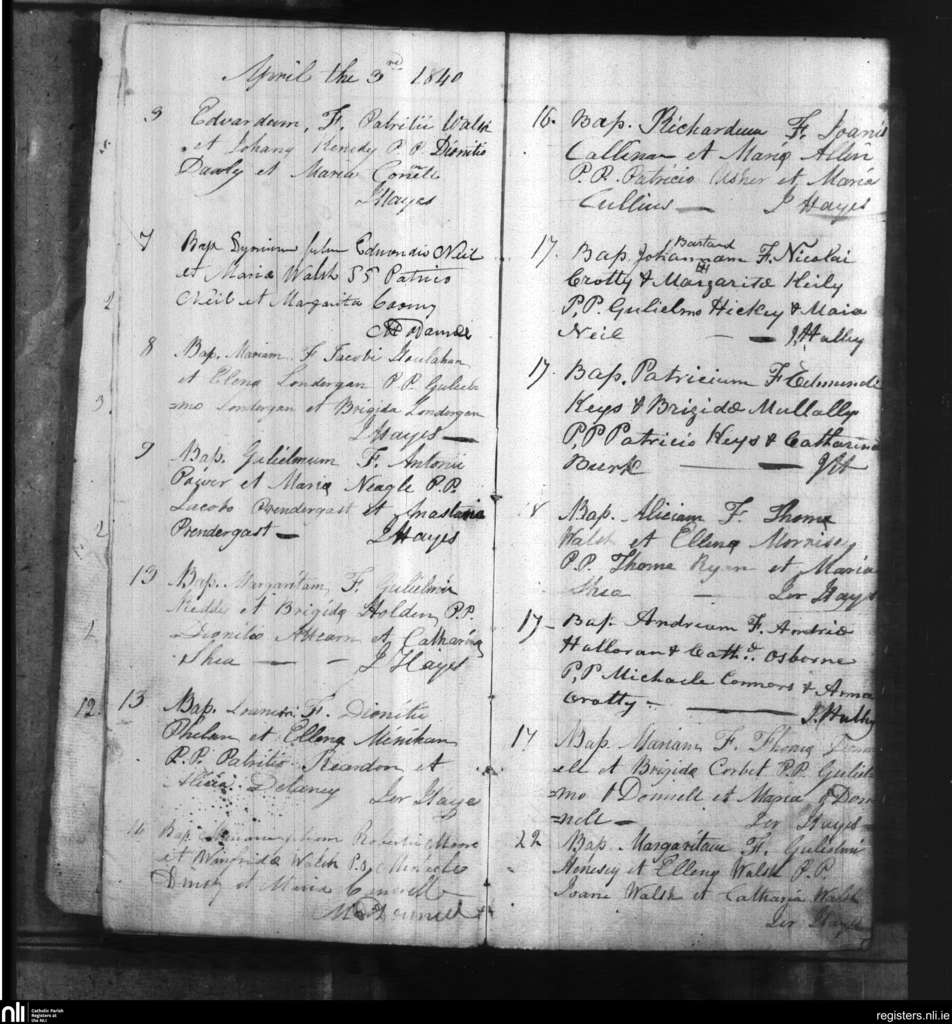 April the 3rd 1840
3 Edvardum, F. Patritii Walsh
et Johana Kenedy P.P. Dionitio
Dawly et Maria
J Hayes
7 Bap Edmondis Neil
et Maria Walsh SS Patricio
Neil et Margarita Coony
8 Bap. Mariam F Jacobi Houlahan
et Elena Londergan P.P. Guliel
=mo Londergan et Brigida Londergan
J Hayes
9 Bap. Gulielmum F. Antonii
Power et Maria Neagle P.P.
Jacobo Prendergast et Anastasia
Prendergast J Hayes
13 Bap. Margaritam F. Gulielmi
et Brigida Holden P.P.
Dionitio Ahearn et Catharina
Shea J Hayes
12. 13 Bap. F. Dionitii
Phelan et Ellena Minihan
P.P. Patritio Reardon et
Alicia Delaney Jer Hayes
Bap. Roberti Moore
et Winifrida Walsh
et Maria
16. Bap. Richardum F. Joanis
Callinan et Maria Allin
P.P. Patricio Usher et Maria
Cullins J Hayes
Bastard
17. Bap. Johannam F. Nicolai
Crotty & Margaritæ Heily
P.P. Gulielmo Hickey & Maia
Neil J. Hally
17. Bap. Patricium F Edmundi
Keys & Brigidæ Mullally
P.P Patricio Keys & Catharina
Burk JH
18 Bap. Aliciam F. Thoma
Walsh et Ellena Morrisey
P.P. Thoma Ryan et Maria
Shea Jer Hayes
17- Bap. Andream F. Andriæ
Halloran & Cath. Osborne
P.P Michaele Connors & Anna
Crotty. J. Hally
17 Bap. Mariam F. Thoma
ell et Brigida Corbet P.P. Guliel
=mo O Donnell et Maria O Don
=nell Jer Hayes
22 Bap. Margaritam F. Gulielmi
Henisey et Ellena Walsh P.P.
Joane Walsh et Catharia Walsh
Jer Hayes
nli Catholic Parish
Registers at
the NLI
registers.nli.ie